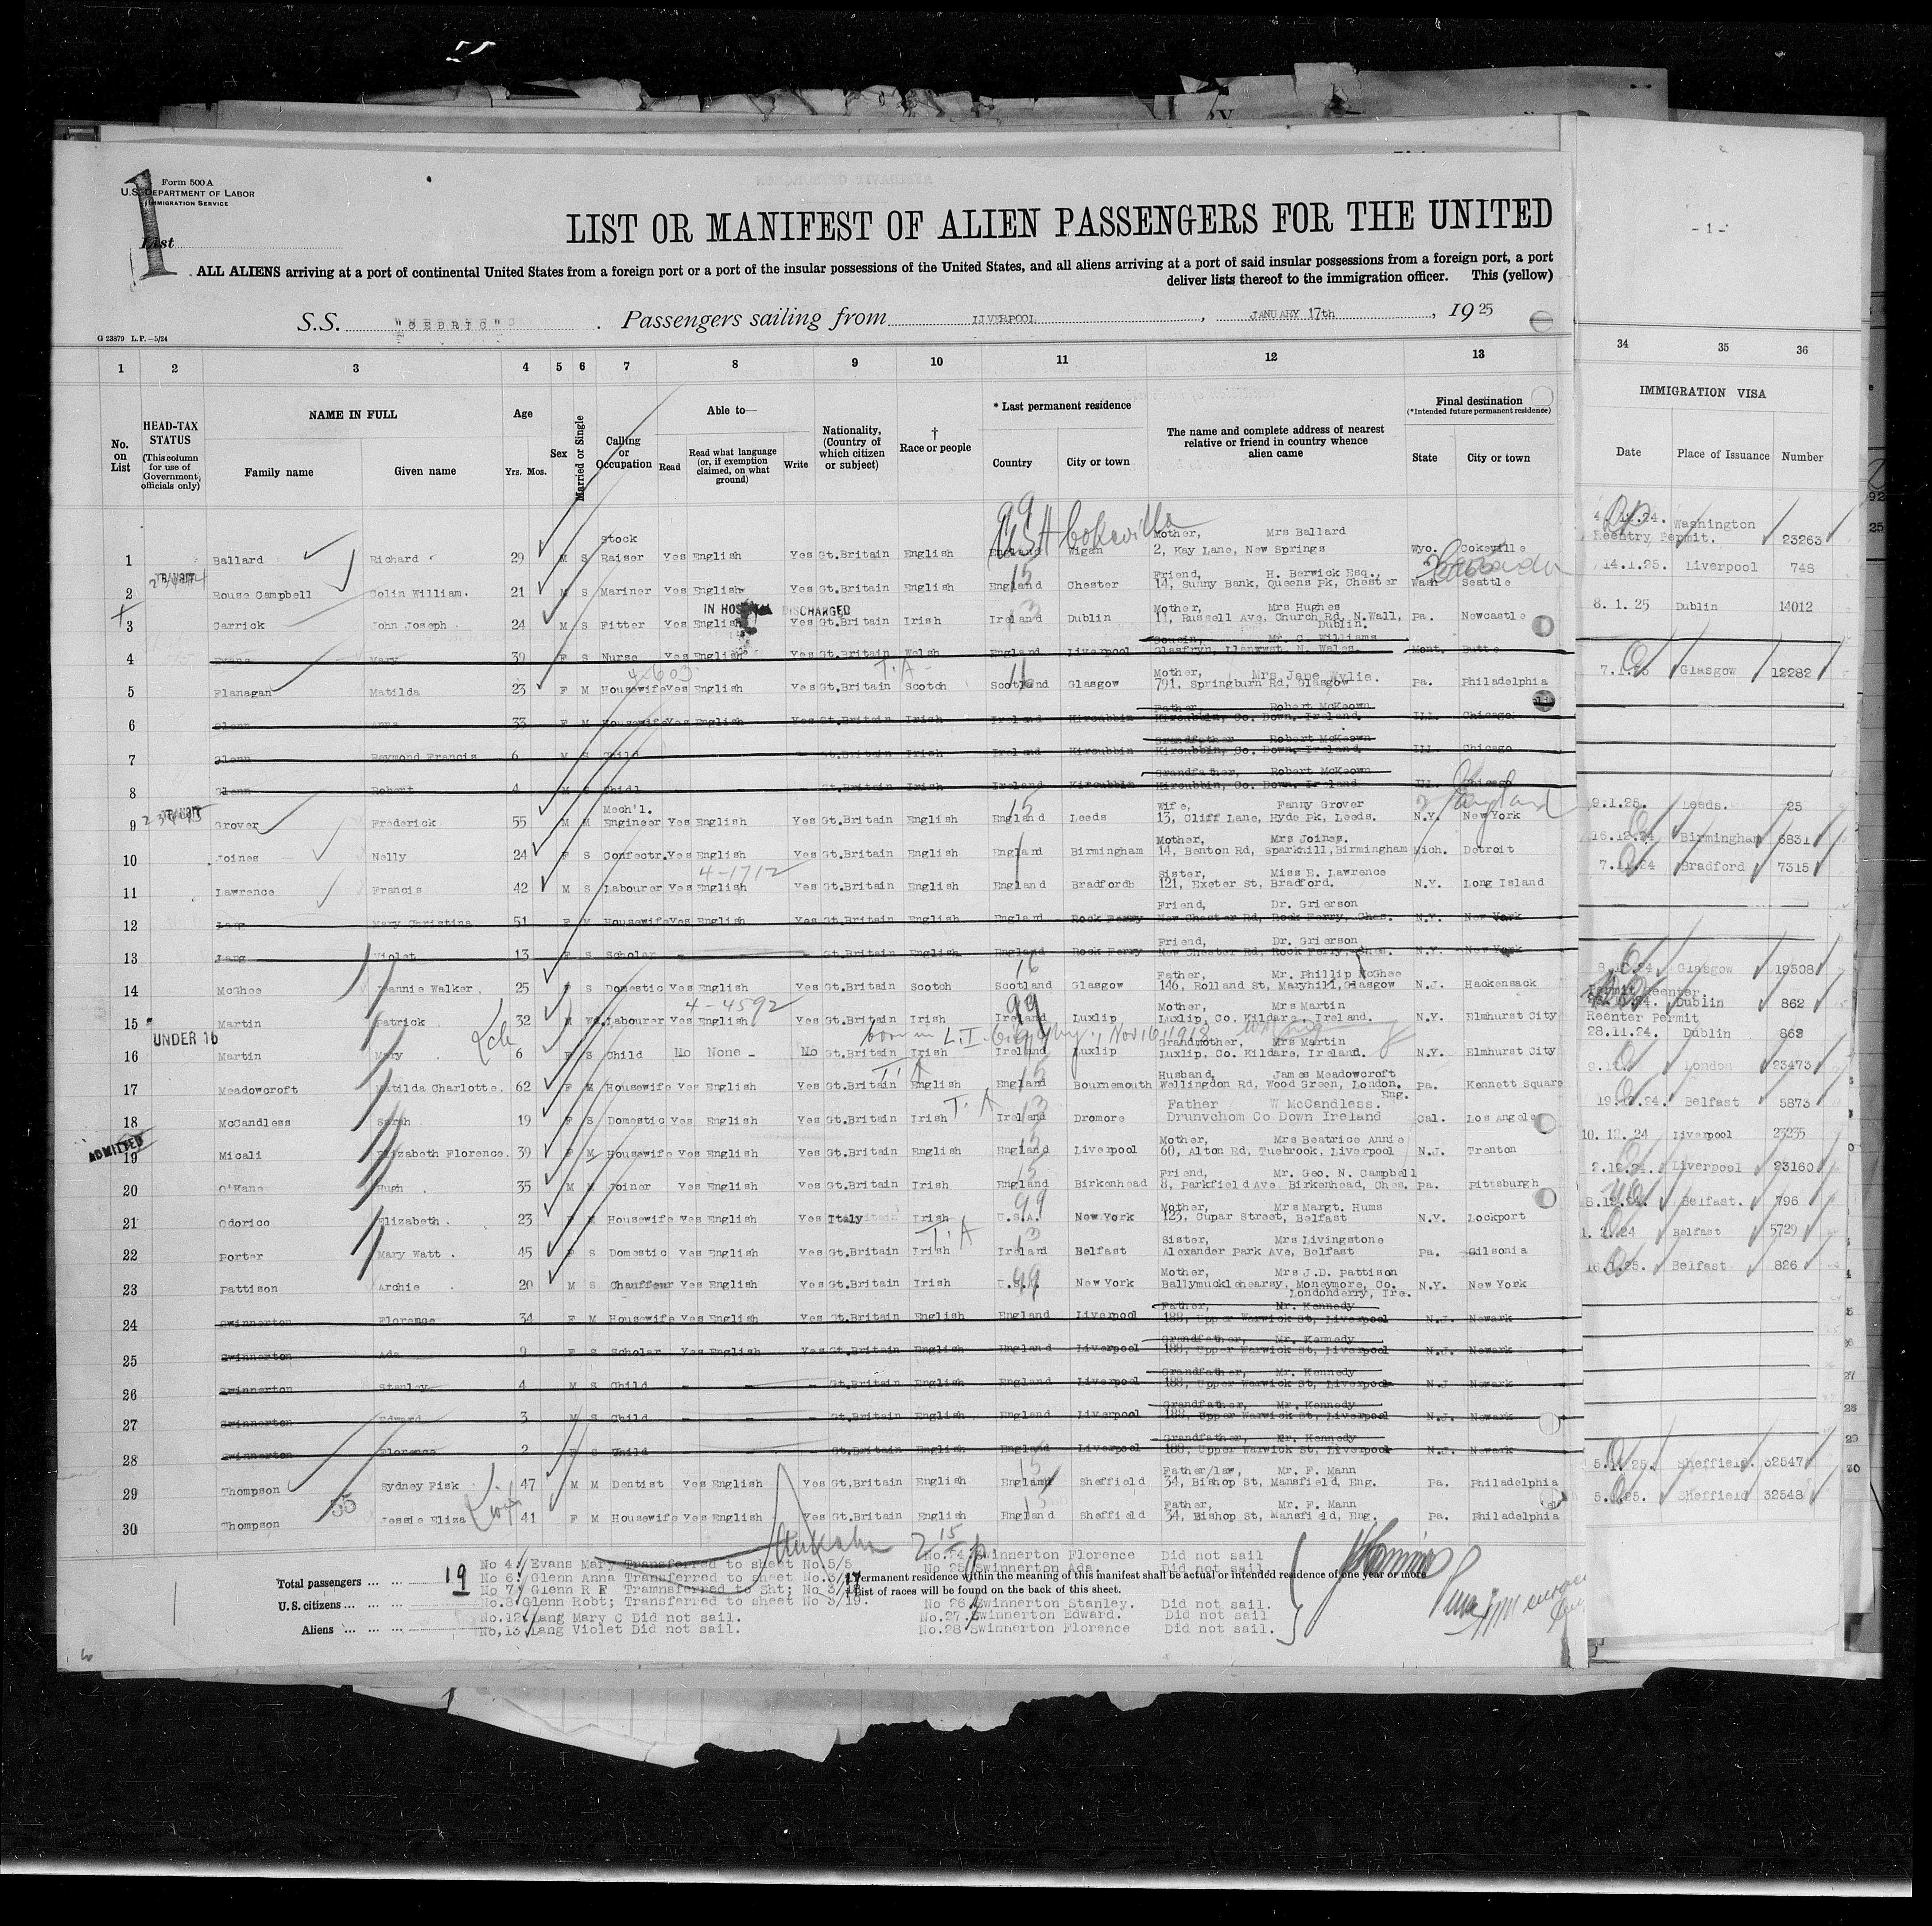 1
Form 500 A
U.S. DEPARTMENT OF LABOR
IMMIGRATION SERVICE
List
LIST OR MANIFEST OF ALIEN PASSENGERS FOR THE UNITED
- 1 -
ALL ALIENS arriving at a port of continental United States from a foreign port or a port of the insular possessions of the United States, and all aliens arriving at a port of said insular possessions from a foreign port, a port
deliver lists thereof to the immigration officer. This (yellow)
S.S. "CEDRIC" . Passengers sailing from LIVERPOOL , JANUARY 17th , 19 25
G 23879 L.P.—5/24
1 2 3 4 5 6 7 8 9 10 11 12 13 34 35 36
No. on List
HEAD-TAX STATUS (This column for use of Government officials only)
NAME IN FULL Family name Given name
Age Yrs. Mos.
Sex
Married or Single
Calling or Occupation
Able to— Read Read what language (or, if exemption claimed, on what ground) Write
Nationality, (Country of which citizen or subject)
† Race or people
* Last permanent residence Country City or town
The name and complete address of nearest relative or friend in country whence alien came
Final destination (*Intended future permanent residence) State City or town
IMMIGRATION VISA Date Place of Issuance Number
1 Ballard Richard 29 M S Stock Raiser Yes English Yes Gt.Britain English England Wigan Mother, Mrs Ballard 2, Kay Lane, New Springs Wyo. Cokeville Washington Reentry Permit. 23263
USA Cokeville
2 TRANSIT Rouse Campbell Colin William. 21 M S Mariner Yes English Yes Gt.Britain English England Chester Friend, H. Berwick Esq., 14, Sunny Bank, Queens Pk, Chester Wash Seattle 14.1.25. Liverpool 748
IN HOSPITAL DISCHARGED
3 Carrick John Joseph 24 M S Fitter Yes English Yes Gt.Britain Irish Ireland Dublin Mother, Mrs Hughes 11, Russell Ave, Church Rd, N.Wall, Dublin. Pa. Newcastle 8. 1. 25 Dublin 14012
4 Evans Mary 39 F S Nurse Yes English Yes Gt.Britain Welsh England Liverpool Cousin, Mr. C. Williams Glasfryn, Llanrwst. N. Wales. Mont. Butte
4-603 T.A
5 Flanagan Matilda 23 F M Housewife Yes English Yes Gt.Britain Scotch Scotland Glasgow Mother, Mrs Jane Wylie. 791, Springburn Rd, Glasgow Pa. Philadelphia Glasgow 12282
6 Glenn Anna 33 F M Housewife Yes English Yes Gt.Britain Irish Ireland Kircubbin Father, Robert McKeown Kircubbin, Co. Down. Ireland. Ill. Chicago
7 Glenn Raymond Francis 6 M S Child Gt.Britain Irish Ireland Kircubbin Grandfather Robert McKeown Kircubbin, Co. Down. Ireland Ill. Chicago
8 Glenn Robert 4 M S Chidl Gt.Britain Irish Ireland Kircubbin Grandfather, Robert McKeown Kircubbin, Co. Down. Ireland Ill. Chicago
9 TRANSIT Grover Frederick 55 M M Mech'l. Engineer Yes English Yes Gt.Britain English England Leeds Wife, Fanny Grover 13, Cliff Lane, Hyde Pk, Leeds. N.Y. New York 9.1.25. Leeds. 25
10 Joines Nelly 24 F S Confectr. Yes English Yes Gt.Britain English England Birmingham Mother, Mrs Joines. 14, Benton Rd, Sparkhill, Birmingham Mich. Detroit 16.12.24 Birmingham 6831
4-1712
11 Lawrence Francis 42 M S Labourer Yes English Yes Gt.Britain English England Bradfordh Sister, Miss E. Lawrence 121, Exeter St, Bradford. N.Y. Long Island Bradford 7315
12 Lang Mary Christina 51 F M Housewife Yes English Yes Gt.Britain English England Rock Ferry Friend, Dr. Grierson New Chester Rd, Rock Ferry, Ches. N.Y. New York
13 Lang Violet 13 F S Scholar - - - Gt.Britain English England Rock Ferry Friend, Dr. Grierson New Chester Rd, Rock Ferry, Ches. N.Y. New York
14 McGhee Jeannie Walker. 25 F S Domestic Yes English Yes Gt.Britain Scotch Scotland Glasgow Father, Mr. Phillip McGhee 146, Rolland St, Maryhill, Glasgow N.J. Hackensack Glasgow 19508
4-4592
15 Martin Patrick 32 M Wd. Labourer Yes English Yes Gt.Britain Irish Ireland Luxlip Mother, Mrs Martin Luxlip, Co. Kildare, Ireland. N.Y. Elmhurst City Permit Reenter Dublin 862
UNDER 16
16 Martin Mary 6 F S Child No None - No Gt.Britain Irish Ireland Luxlip Grandmother, Mrs Martin Luxlip, Co. Kildare, Ireland. N.Y. Elmhurst City Reenter Permit 28.11.24. Dublin 862
17 Meadowcroft Matilda Charlotte. 62 F M Housewife Yes English Yes Gt.Britain English England Bournemouth Husband, James Meadowcroft Wellingdon Rd, Wood Green, London. Eng. Pa. Kennett Square London 23473
T.A
18 McCandless Sarah 19 F S Domestic Yes English Yes Gt.Britain Irish Ireland Dromore Father W McCandless. Drunvehom Co Down Ireland Cal. Los Angele 19.12.24. Belfast 5873
T.A
ADMITTED
19 Micali Elizabeth Florence. 39 F M Housewife Yes English Yes Gt.Britain English England Liverpool Mother, Mrs Beatrice Annie 60, Alton Rd, Tuebrook, Liverpool N.J. Trenton 10. 12. 24 Liverpool 23235
20 O'Kane Hugh 35 M M Joiner Yes English Yes Gt.Britain Irish England Birkenhead Friend, Mr. Geo. N. Campbell 8, Parkfield Ave, Birkenhead, Ches. Pa. Pittsburgh 2.12.24. Liverpool 23160
21 Odorico Elizabeth. 23 F M Housewife Yes English Yes Italy Irish U.S.A. New York Mother, Mrs Margt. Hums 123, Cupar Street, Belfast N.Y. Lockport 8.12.24. Belfast. 796
T.A
22 Porter Mary Watt. 45 F S Domestic Yes English Yes Gt.Britain Irish Ireland Belfast Sister, Mrs Livingstone Alexander Park Ave, Belfast Pa. Gilsonia Belfast 5729
23 Pattison Archie 20 M S Chauffeur Yes English Yes Gt.Britain Irish New York Mother, Mrs J.D. Pattison Ballymucklehearsy, Moneymore, Co. Londonderry, Ire. N.Y. New York Belfast 826
24 Swinnerton Florence 34 F M Housewife Yes English Yes Gt.Britain English England Liverpool Father, Mr. Kennedy 188, Upper Warwick St, Liverpool N.J. Newark
25 Swinnerton Ada 9 F S Scholar Yes English Yes Gt.Britain English England Liverpool Grandfather, Mr. Kennedy 188, Upper Warwick St, Liverpool N.J. Newark
26 Swinnerton Stanley 4 M S Child - - - Gt.Britain English England Liverpool Grandfather, Mr. Kennedy 188, Upper Warwick St, Liverpool N.J Newark
27 Swinnerton Edward 3 M S Child - - - Gt.Britain English England Liverpool Grandfather, Mr. Kennedy 188, Upper Warwick St, Liverpool N.J. Newark
28 Swinnerton Florence 2 F S Child - - - Gt.Britain English England Liverpool Grandfather, Mr. Kennedy 188, Upper Warwick St, Liverpool N.J. Newark
29 Thompson Sydney Fisk 47 M M Dentist Yes English Yes Gt.Britain English England Sheffield Father/law, Mr. F. Mann 34, Bishop St, Mansfield, Eng. Pa. Philadelphia Sheffield. 32547
30 Thompson Jessie Eliza 41 F M Housewife Yes English Yes Gt.Britain English England Sheffield Father, Mr. F. Mann 34, Bishop St, Mansfield, Eng. Pa. Philadelphia Sheffield 32548
Total passengers ... ... 19
U.S. citizens ... ...
Aliens ... ... ...
No 4: Evans Mary Transferred to sheet No.5/5
No 6: Glenn Anna Transferred to sheet No.3/17
No 7: Glenn R F Tramnsferred to Sht; No 3/18
No.8 Glenn Robt; Transferred to sheet No 3/19.
No.12 Lang Mary C Did not sail.
No,13 Lang Violet Did not sail.
No.24 Swinnerton Florence Did not sail
No 25 Swinnerton Ada. Did not sail.
Permanent residence within the meaning of this manifest shall be actual or intended residence of one year or more
List of races will be found on the back of this sheet.
No 26 Swinnerton Stanley. Did not sail.
No.27. Swinnerton Edward. Did not sail
No.28 Swinnerton Florence Did not sail.